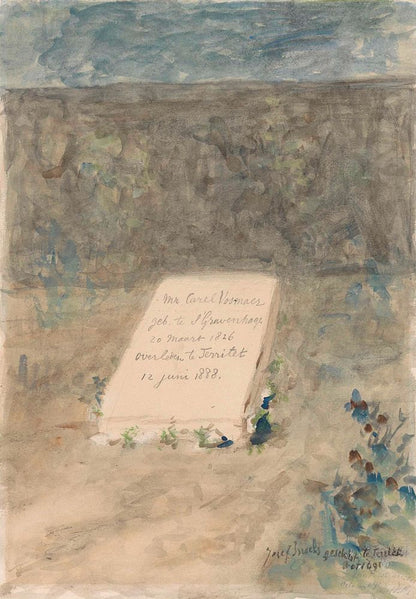 Mr Carel Vosmaer
geb. te S'Gravenhage
20 Maart 1826
overleden te Territet
12 juni 1888.
Jozef Israëls geschetst te Territet